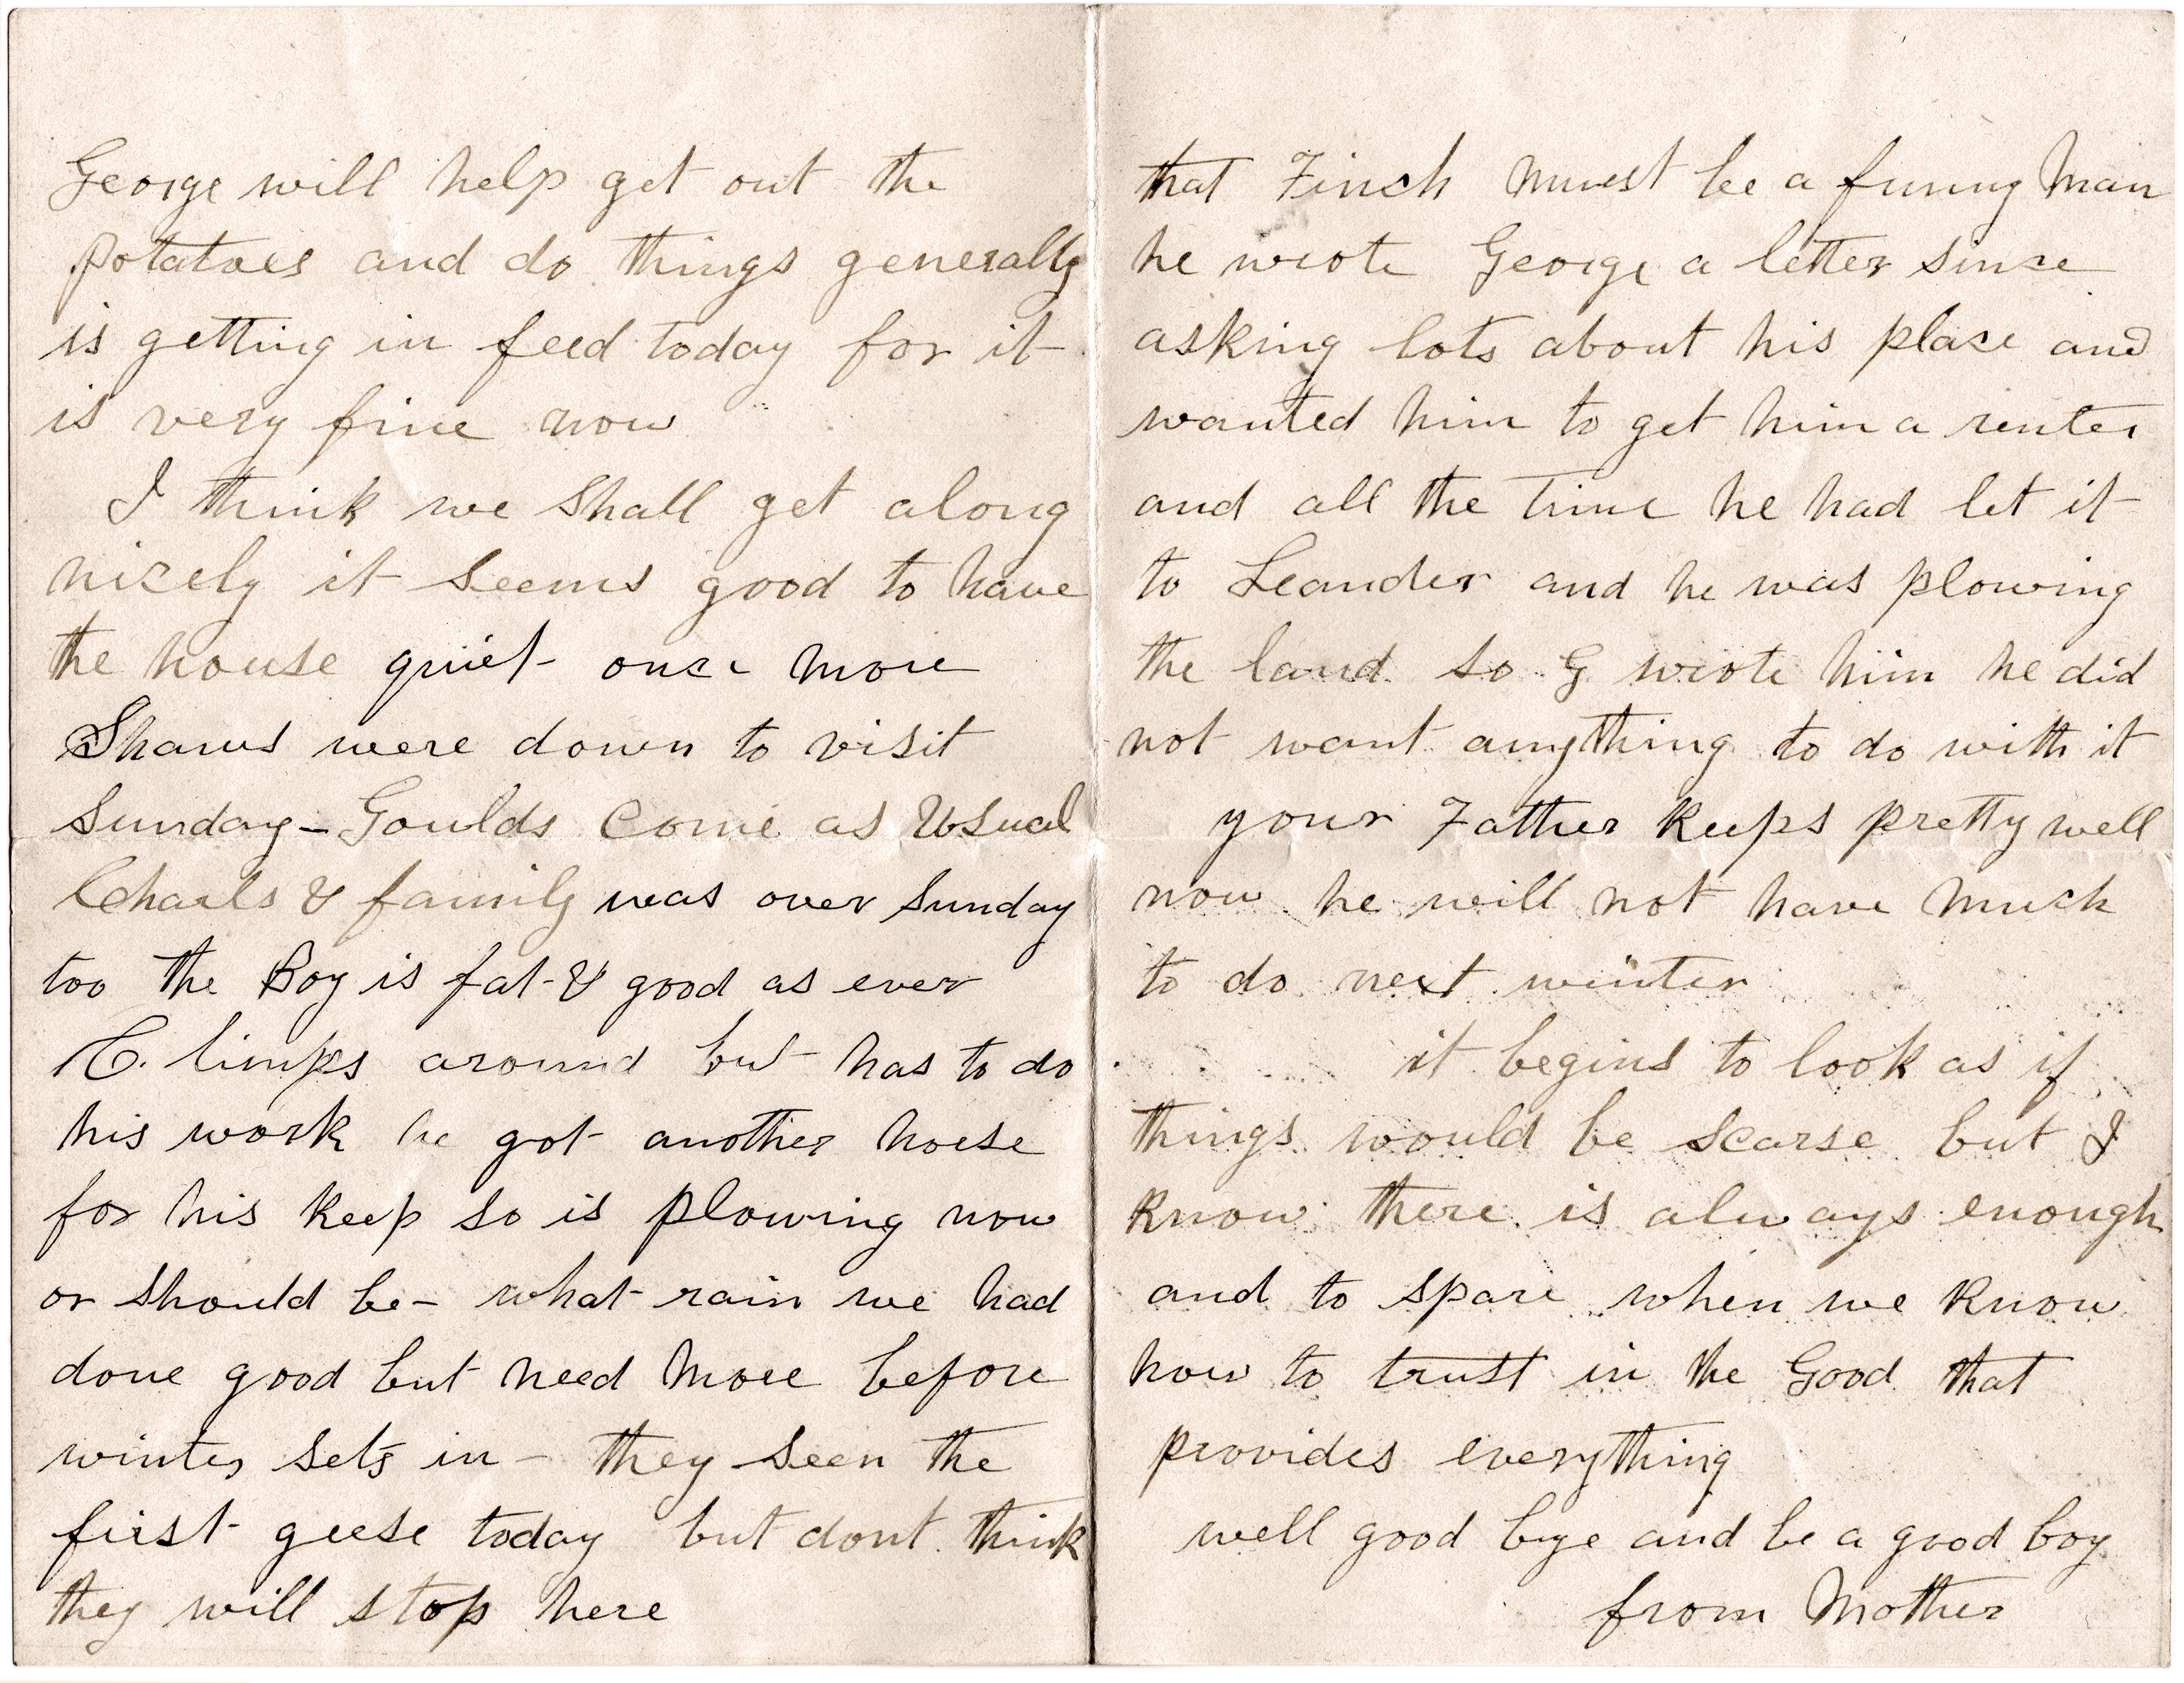 George will help get out the
potatoes and do things generally
is getting in feed today for it
is very fine now
I think we shall get along
nicely it seems good to have
the house quiet once more
Shaws were down to visit
Sunday - Goulds Come as Usual
Charls & family was over Sunday
too the Boy is fat & good as ever
C. limps around but has to do
his work he got another horse
for his keep so is plowing now
or should be - what rain we had
done good but need more before
winter sets in - they seen the
first geese today but dont think
they will stop here
that Finch must be a funny man
he wrote George a letter since
asking lots about his place and
wanted him to get him a renter
and all the time he had let it
to Leander and he was plowing
the land so G wrote him he did
not want anything to do with it
your Father keeps pretty well
now he will not have much
to do next winter
it begins to look as if
things would be scarse but I
know there is always enough
and to spare when we know
how to trust in the Good that
provides everything
well good bye and be a good boy
from Mother